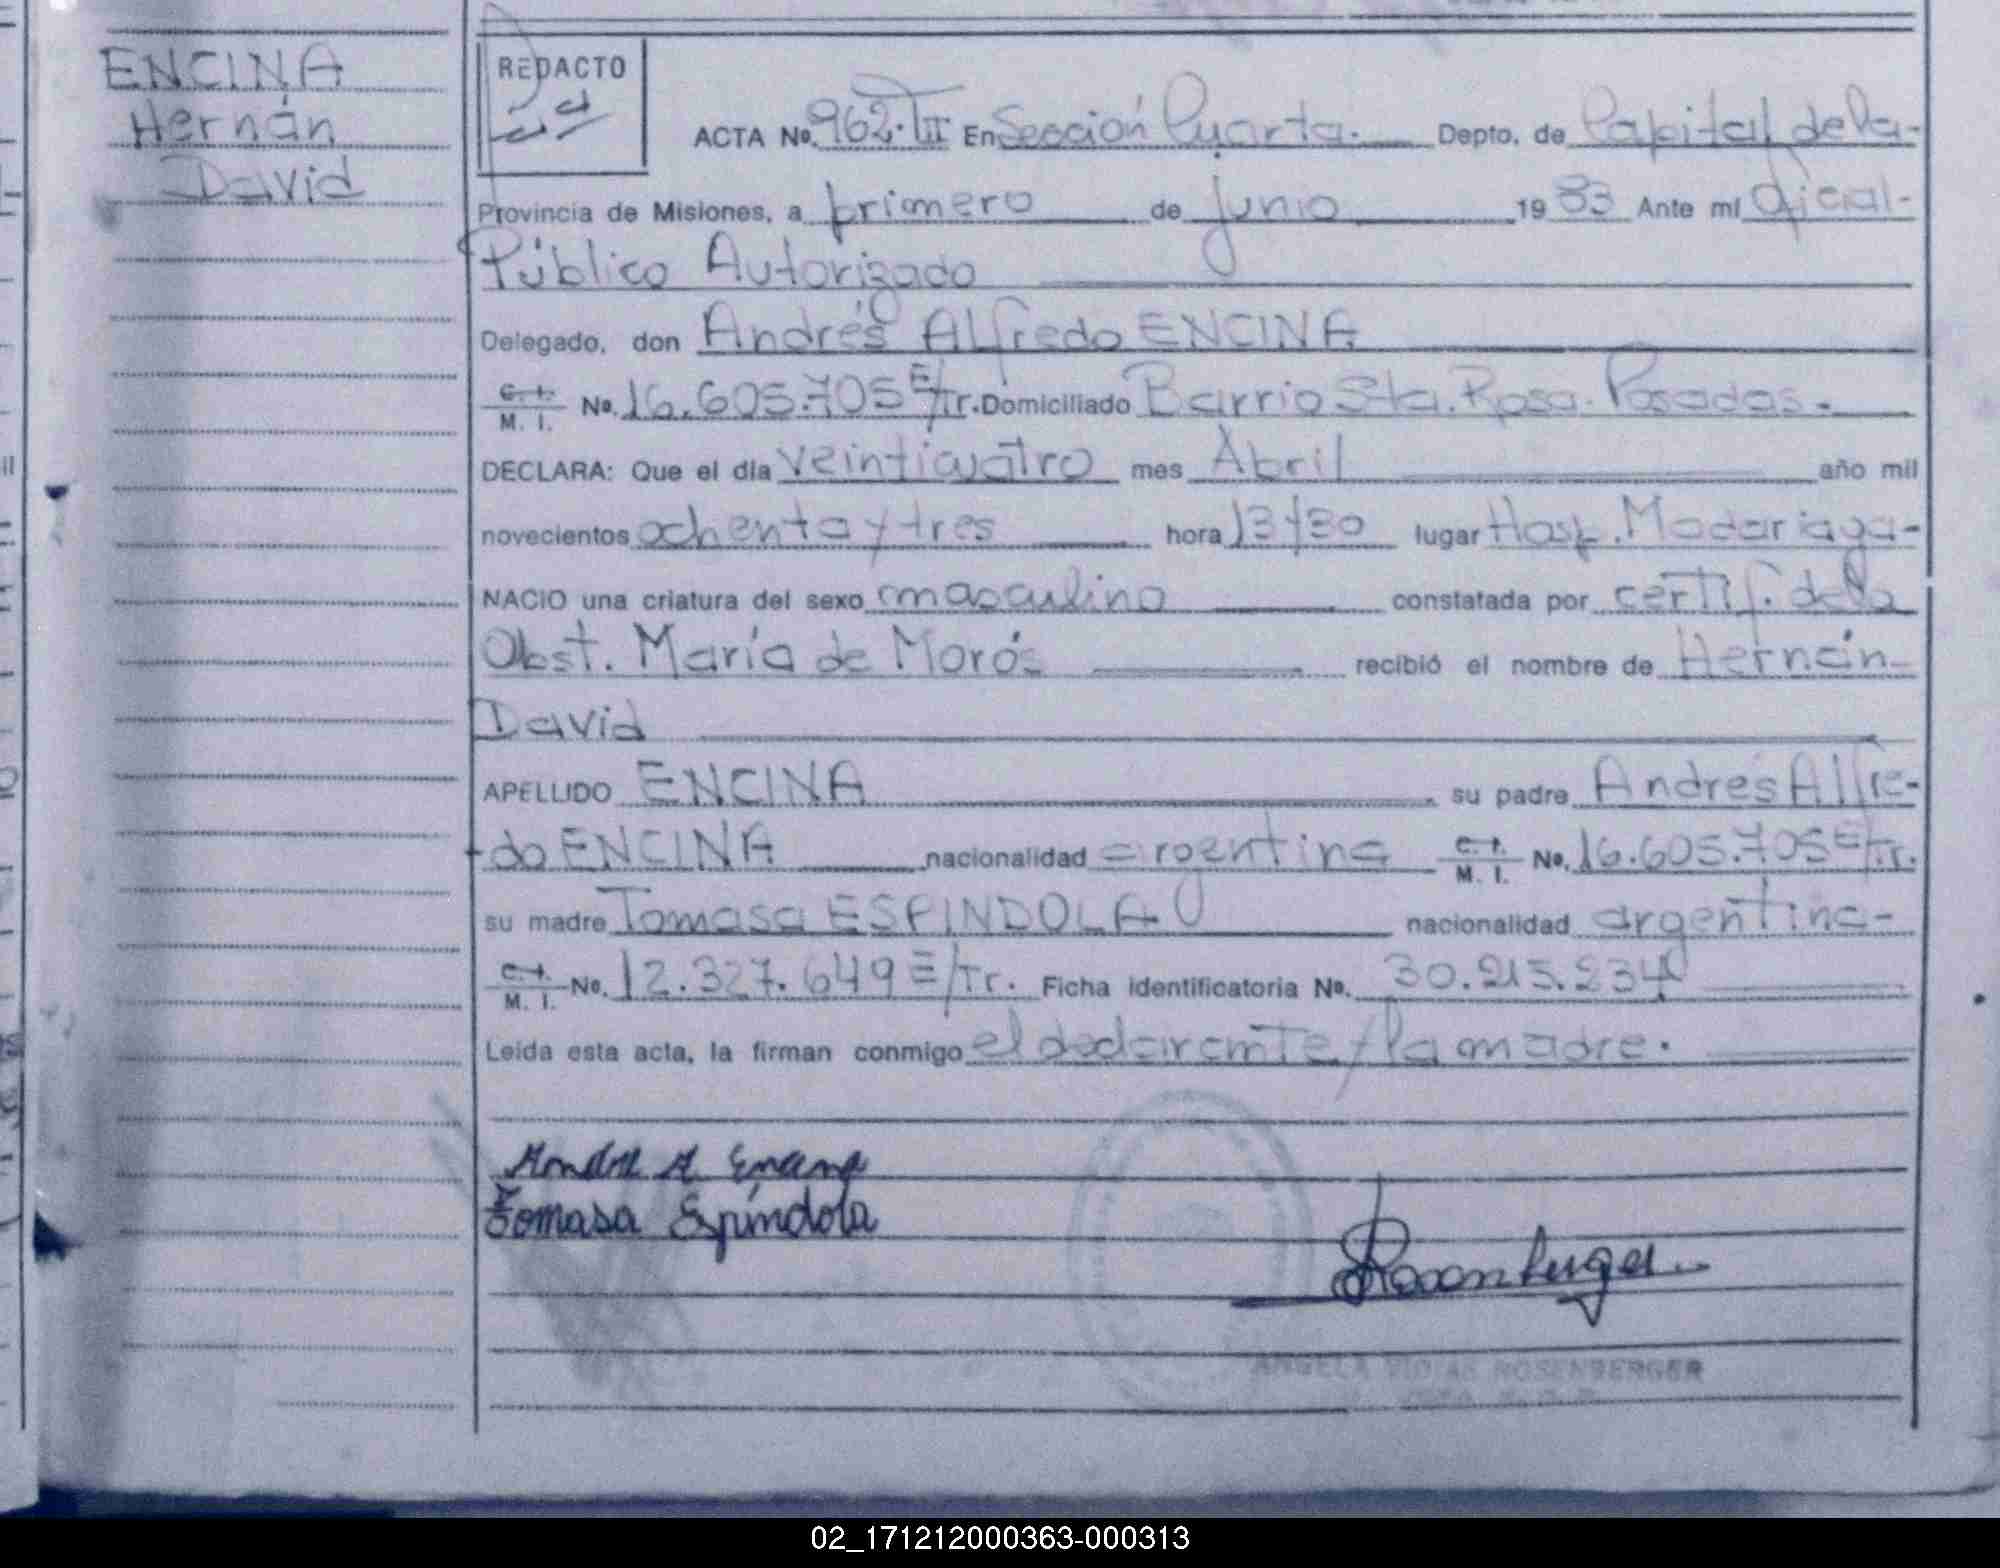 ENCINA
Hernán
David
REDACTO
ACTA No. 962. TII En Sección Cuarta. Depto. de Capital de la-
Provincia de Misiones, a primero de junio 1983 Ante mí Oficial-
Público Autorizado
Delegado, don Andrés Alfredo ENCINA
C. I.
M. I. No. 16.605.705 E/Tr. Domiciliado Barrio Sta. Rosa. Posadas.-
DECLARA: Que el día veinticuatro mes Abril año mil
novecientos ochenta y tres hora 13/30 lugar Hosp. Madariaga-
NACIO una criatura del sexo masculino constatada por certif. de la
Obst. María de Morós recibió el nombre de Hernán-
David
APELLIDO ENCINA su padre Andrés Alfre-
do ENCINA nacionalidad argentina C. I.
M. I. No. 16.605.705 E/Tr.
su madre Tomasa ESPINDOLA nacionalidad argentina-
C. I.
M. I. No. 12.327.649 E/Tr. Ficha identificatoria No. 30.215.234
Leída esta acta, la firman conmigo el declarante y la madre.
Andre A Encina
Tomasa Espíndola
Rosenberger
ANGELA ROSENBERGER
02_171212000363-000313